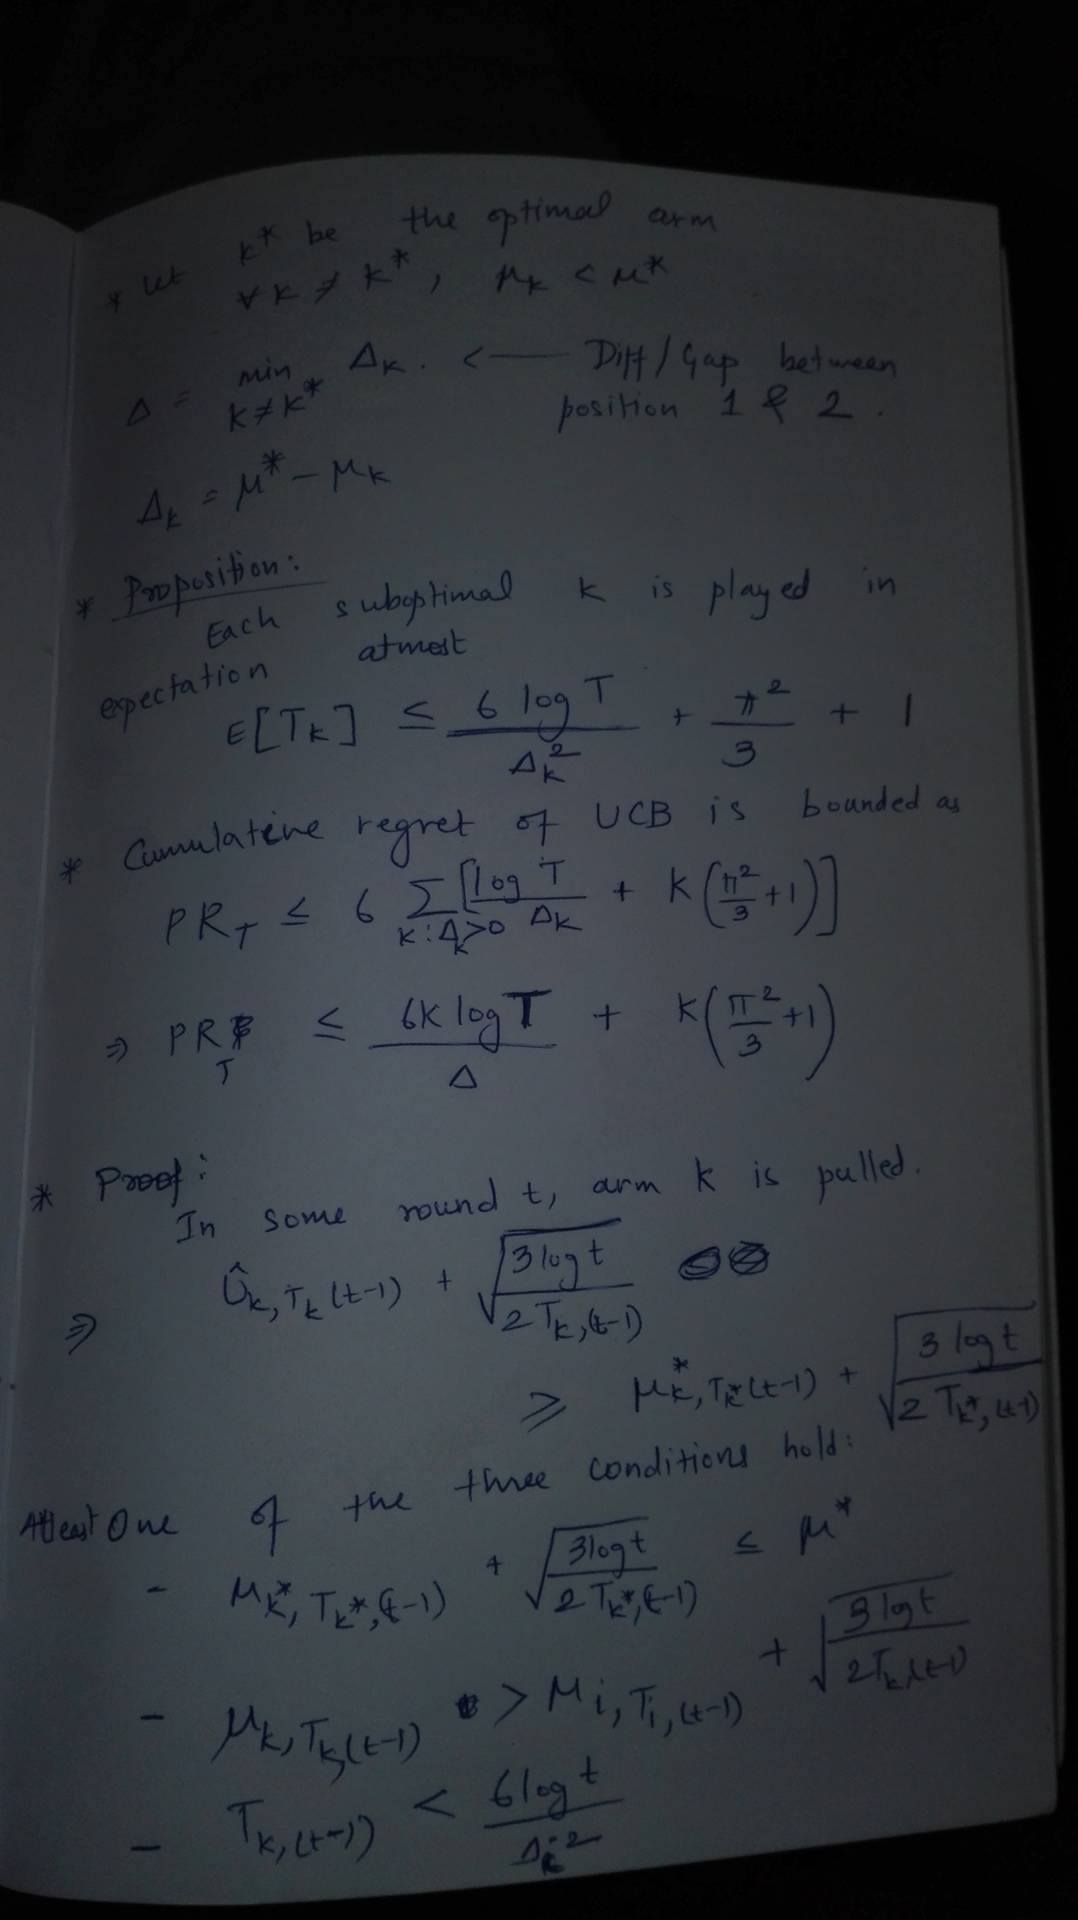 * Let k* be the optimal arm
∀ k ≠ k*, μ_k < μ*
Δ = min_{k≠k*} Δ_k. <— Diff/Gap between
position 1 & 2.
Δ_k = μ* − μ_k
* Proposition:
Each suboptimal k is played in
expectation atmost
E[T_k] ≤ 6 log T / Δ_k² + π²/3 + 1
* Cumulative regret of UCB is bounded as
PR_T ≤ 6 Σ_{k:Δ_k>0} [log T / Δ_k + K(π²/3 + 1)]
⇒ PR_T ≤ 6K log T / Δ + K(π²/3 + 1)
* Proof:
In some round t, arm k is pulled.
⇒ Û_{k, T_k(t−1)} + √(3 log t / 2 T_{k,(t−1)})
≥ μ_{k*, T_{k*}(t−1)} + √(3 log t / 2 T_{k*,(t−1)})
Atleast One of the three conditions hold:
- μ_{k*, T_{k*,(t−1)}} + √(3 log t / 2 T_{k*,(t−1)}) ≤ μ*
- μ_{k, T_{k,(t−1)}} > μ_{i, T_{i,(t−1)}} + √(3 log t / 2 T_{k,(t−1)})
- T_{k,(t−1)} < 6 log t / Δ_k²